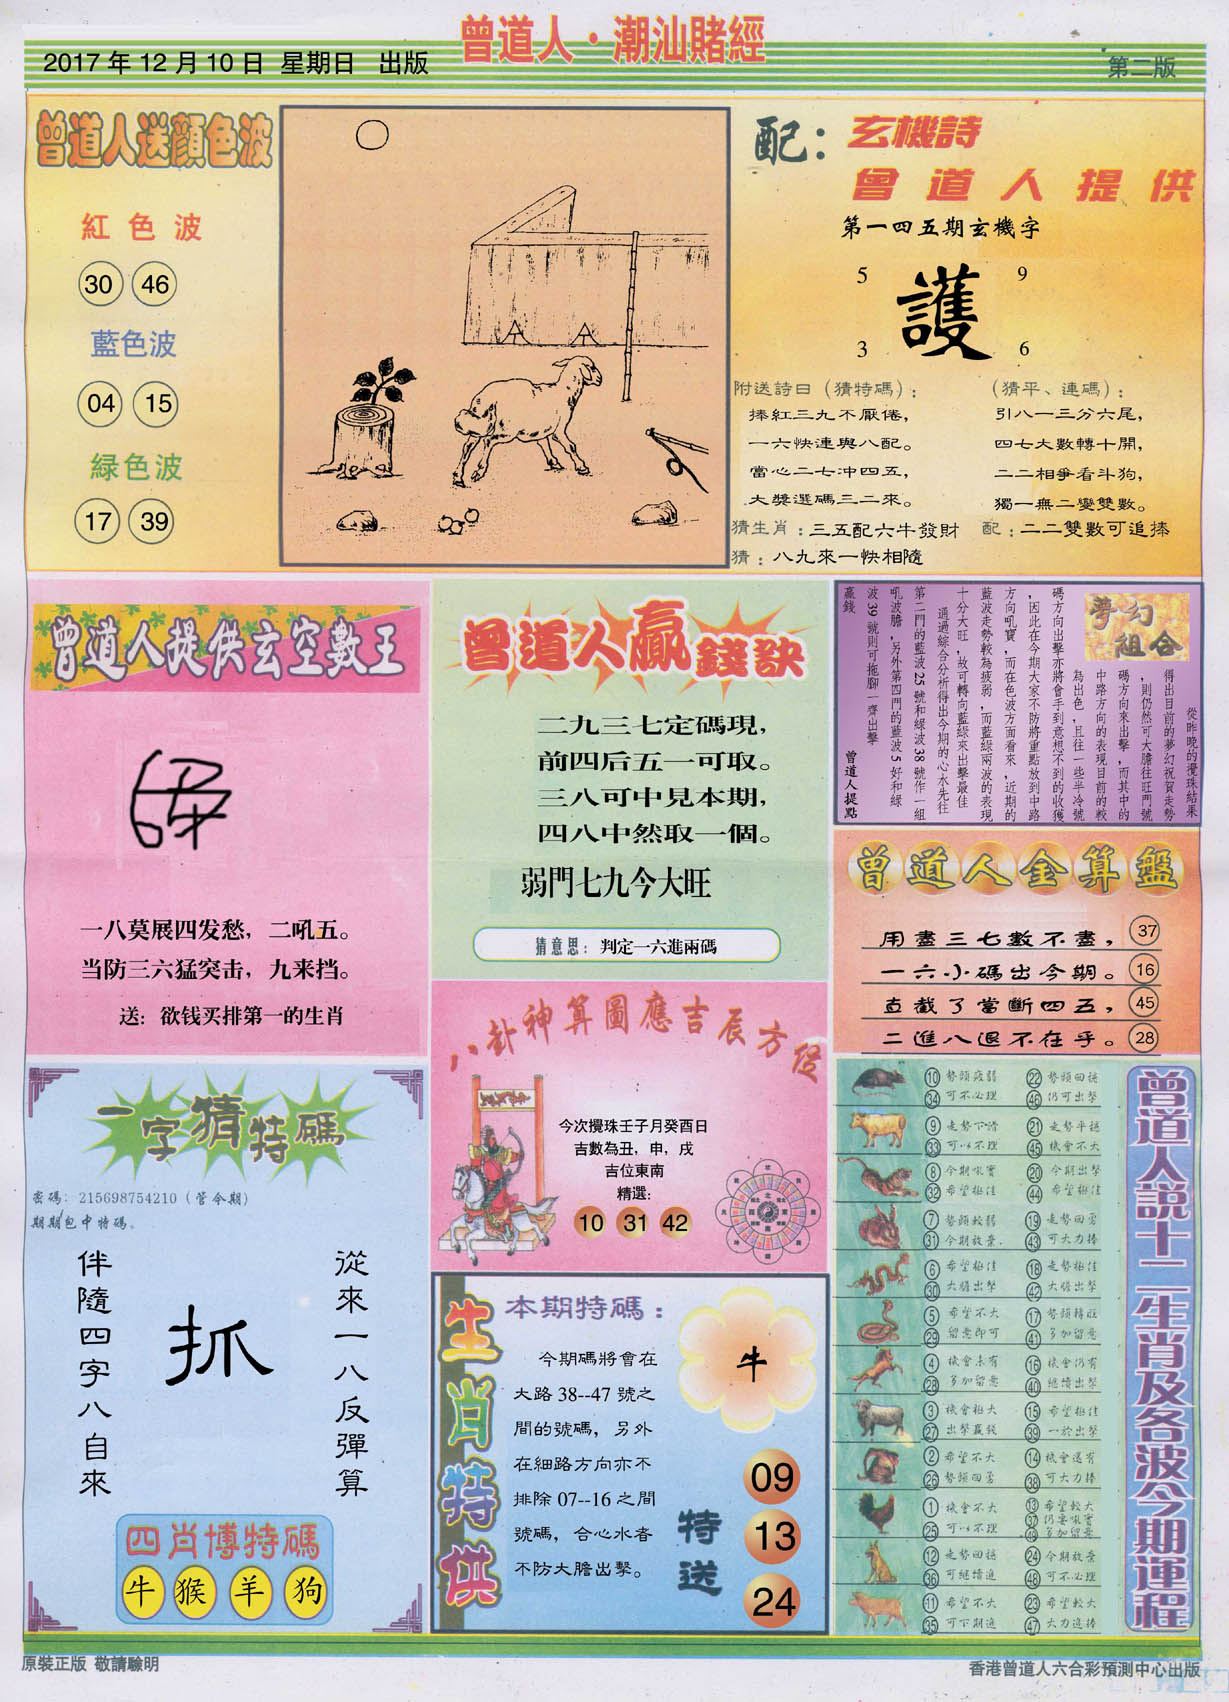 曾道人·潮汕賭經
2017年12月10日 星期日 出版
第二版
曾道人送顏色波
紅色波
30 46
藍色波
04 15
緑色波
17 39
配：玄機詩
曾道人提供
第一四五期玄機字
5 9
護
3 6
附送詩曰（猜特碼）：
捧紅三九不厭倦，
一六快連與八配。
當心二七冲四五，
大獎選碼三二來。
（猜平、連碼）：
引八一三分六尾，
四七大數轉十開，
二二相爭看斗狗，
獨一無二變雙數。
猜生肖：三五配六牛發財
配：二二雙數可追捧
猜：八九來一快相隨
曾道人提供玄空數王
一八莫展四发愁，二吼五。
当防三六猛突击，九来挡。
送：欲钱买排第一的生肖
曾道人贏錢訣
二九三七定碼現，
前四后五一可取。
三八可中見本期，
四八中然取一個。
弱門七九今大旺
猜意思：判定一六進兩碼
夢幻組合
從昨晚的攪珠結果
得出目前的夢幻祝賀走勢
，則仍然可大膽往旺門號
碼方向來出擊，而其中的
中路方向的表現目前的較
為出色，且往一些半冷號
碼方向出擊亦將會手到意想不到的收獲
，因此在今期大家不防將重點放到中路
方向吼寶，而在色波方面看來，近期的
藍波走勢較為疲弱，而藍綠兩波的表現
十分大旺，故可轉向藍綠來出擊最佳
通過綜合分析得出今期的心水先往
第二門的藍波25號和綠波38號作一組
吼波膽，另外第四門的藍波5好和綠
波39號則可拖腳一齊出擊
贏錢
曾道人提點
曾道人金算盤
用盡三七數不盡， 37
一六小碼出今期。 16
直截了當斷四五， 45
二進八退不在乎。 28
八卦神算圖應吉辰方位
今次攪珠壬子月癸酉日
吉數為丑，申，戌
吉位東南
精選：
10 31 42
一字猜特碼
密碼：215698754210（管今期）
期期包中特碼。
從來一八反彈算
抓
伴隨四字八自來
四肖博特碼
牛 猴 羊 狗
生肖特供
本期特碼：
今期碼將會在
大路38--47號之
間的號碼，另外
在細路方向亦不
排除07--16之間
號碼，合心水者
不防大膽出擊。
牛
特送
09
13
24
曾道人説十二生肖及各波今期運程
10 勢頭疲弱 22 勢頭回穩
34 可不必理 46 仍可出擊
9 走勢下滑 21 走勢平穩
33 可以不理 45 機會不大
8 今期吼寶 20 今期出擊
32 希望極佳 44 希望極佳
7 勢頭較弱 19 走勢回勇
31 今期放棄 43 可大力捧
6 希望極佳 18 走勢極佳
30 大膽出擊 42 大膽出擊
5 希望不大 17 勢頭轉旺
29 留意即可 41 多加留意
4 機會未有 16 機會仍有
28 多加留意 40 繼續出擊
3 機會極大 15 希望極佳
27 出擊贏錢 39 一於出擊
2 希望不大 14 機會還有
26 勢頭回勇 38 可大力捧
1 機會不大 13 希望較大
25 可以不理 37 仍要吼寶
49 多加留意
12 走勢回穩 24 今期放棄
36 可繼續追 48 可不必理
11 希望不大 23 希望較大
35 可下期追 47 大力追捧
原裝正版 敬請驗明
香港曾道人六合彩預測中心出版